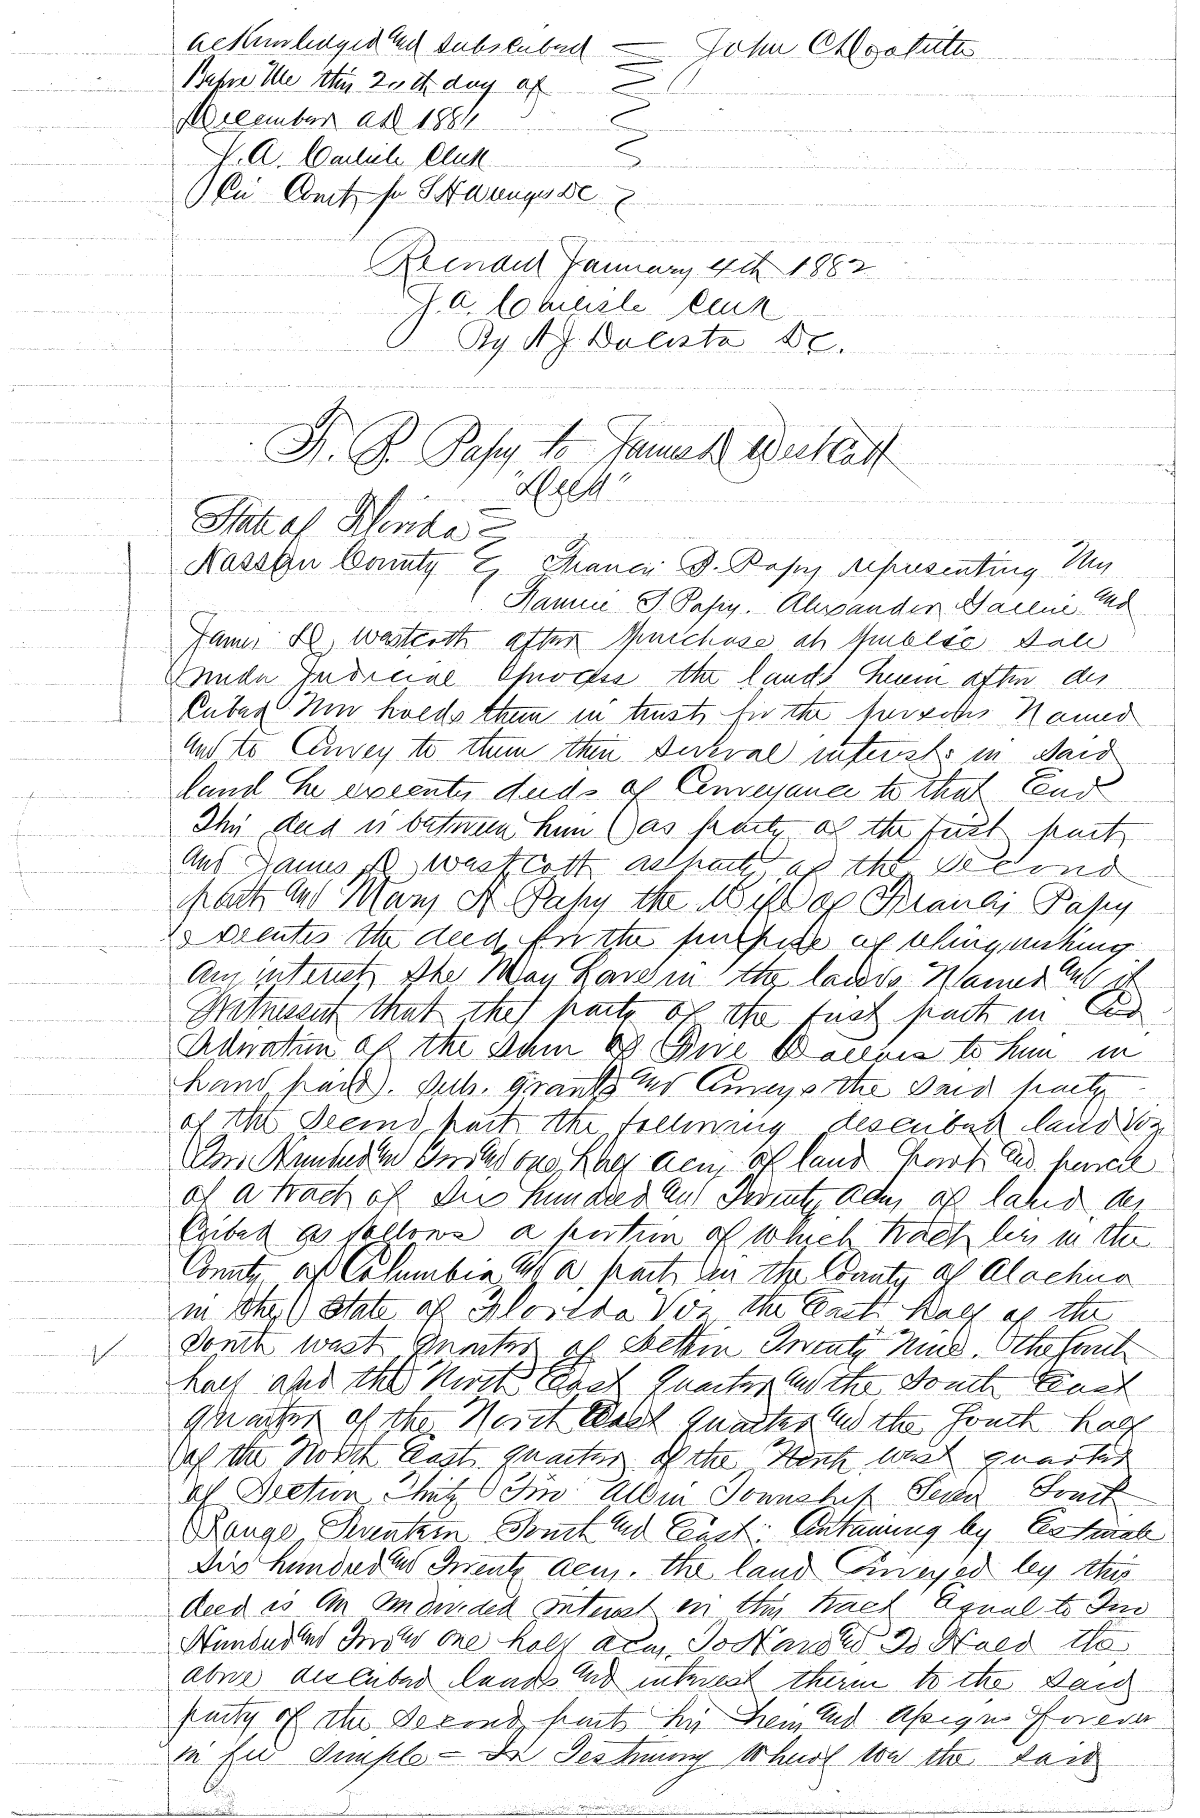 acknowledged and subscribed
Before Me this 20th day of
December AD 1881
J. A. Carlisle Clerk
Cir Court for DC
John C
Record January 4th 1882
J. A. Carlisle Clerk
By A J Dacosta DC.
F. P. Papy to James D Westcott
"Deed"
State of Florida
Nassau County Francis P. Papy representing Mrs
Fannie Papy. Alexander and
James D Westcott after purchase at Public Sale
under Judicial process the lands herein after des
cribed Now holds them in trust for the persons Named
and to Convey to them their several interests in said
land he executes deeds of Conveyance to that End
This deed is between him (as party of the first part
and James D Westcott as party of the second
part and Mary A Papy the Wife of Francis Papy
executes the deed for the purpose of relinquishing
any interest she May have in the lands Named and it
Witnesseth that the party of the first part in Con
sideration of the Sum of Five Dollars to him in
hand paid. Sells. grants and Conveys the said party
of the Second part the following described land Viz
Two Hundred and Two and one half acres of land part and parcel
of a tract of Six hundred and Twenty acres of land des
cribed as follows a portion of which tract lies in the
County of Columbia and a part in the County of Alachua
in the State of Florida Viz the East half of the
South west quarter of Section Twenty Nine. the South
half and the North East quarter and the South East
quarter of the North East quarter and the South half
of the North East quarter of the North west quarter
of Section Thirty Two All in Township Seven South
Range Seventeen South and East. Containing by Estimate
Six hundred and Twenty acres. the land Conveyed by this
deed is an undivided interest in this tract Equal to Two
Hundred and Two and one half acres. To Have and To Hold the
above described lands and interest therein to the said
party of the Second part his heirs and assigns forever
in fee Simple - In Testimony Whereof We the said